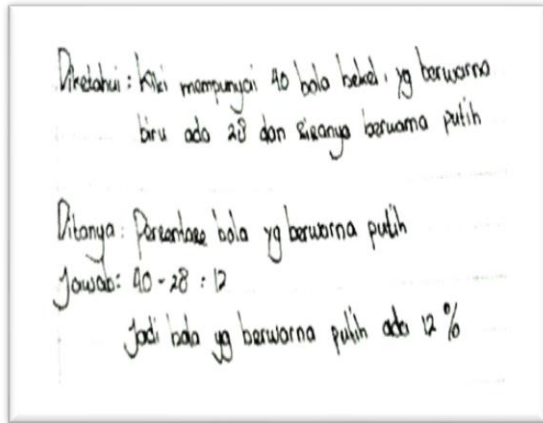 Diketahui : Kiki mempunyai 40 bola bekel, yg berwarna
biru ada 28 dan sisanya berwarna putih
Ditanya : Persentase bola yg berwarna putih
Jawab : 40 - 28 : 12
Jadi bola yg berwarna putih ada 12 %